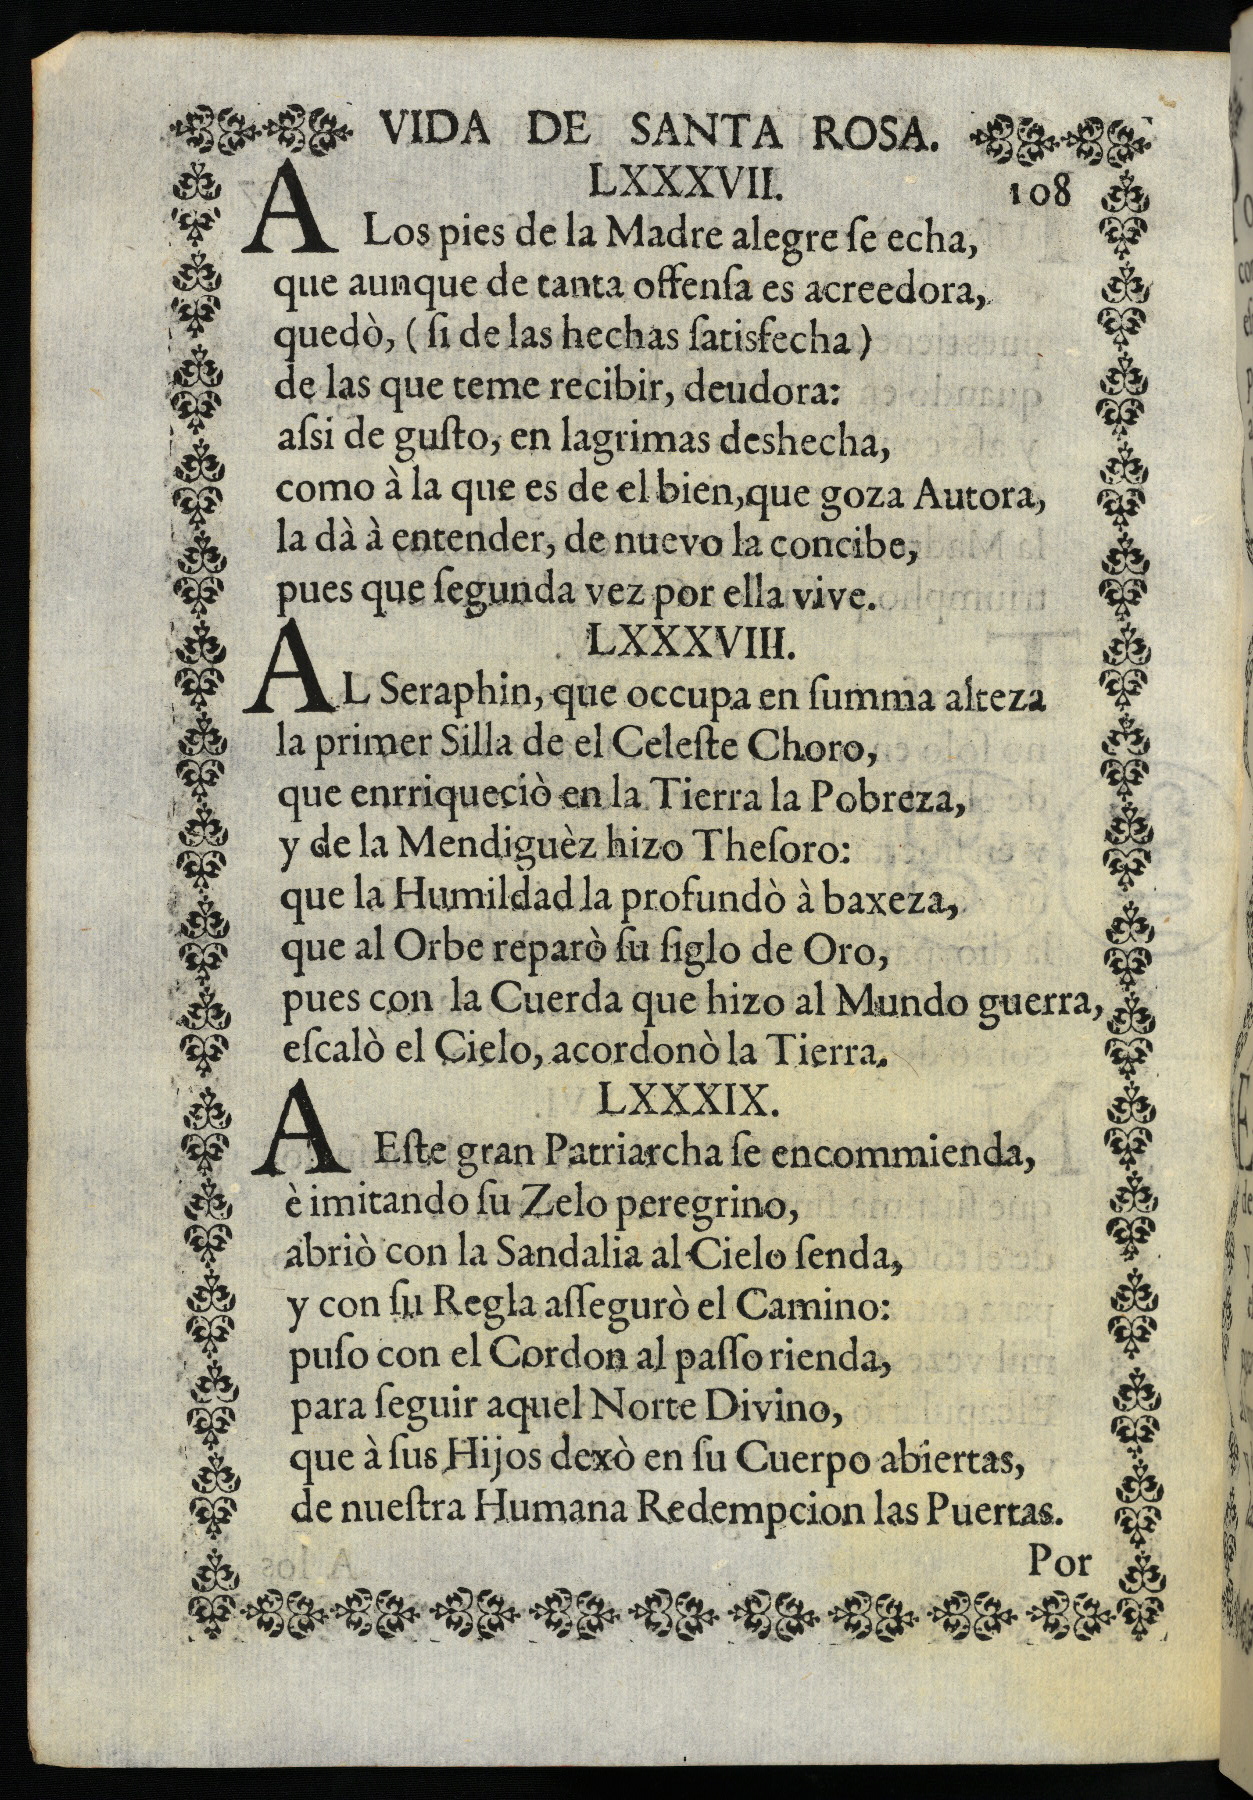 VIDA DE SANTA ROSA.
LXXXVII. 108
A Los pies de la Madre alegre ſe echa,
que aunque de tanta offenſa es acreedora,
quedò, ( ſi de las hechas ſatisfecha )
de las que teme recibir, deudora:
aſsi de guſto, en lagrimas deshecha,
como à la que es de el bien, que goza Autora,
la dà à entender, de nuevo la concibe,
pues que ſegunda vez por ella vive.
LXXXVIII.
AL Seraphin, que occupa en ſumma alteza
la primer Silla de el Celeſte Choro,
que enrriqueciò en la Tierra la Pobreza,
y de la Mendiguèz hizo Theſoro:
que la Humildad la profundò à baxeza,
que al Orbe reparò ſu ſiglo de Oro,
pues con la Cuerda que hizo al Mundo guerra,
eſcalò el Cielo, acordonò la Tierra.
LXXXIX.
A Eſte gran Patriarcha ſe encommienda,
è imitando ſu Zelo peregrino,
abriò con la Sandalia al Cielo ſenda,
y con ſu Regla aſſegurò el Camino:
puſo con el Cordon al paſſo rienda,
para ſeguir aquel Norte Divino,
que à ſus Hijos dexò en ſu Cuerpo abiertas,
de nueſtra Humana Redempcion las Puertas.
Por